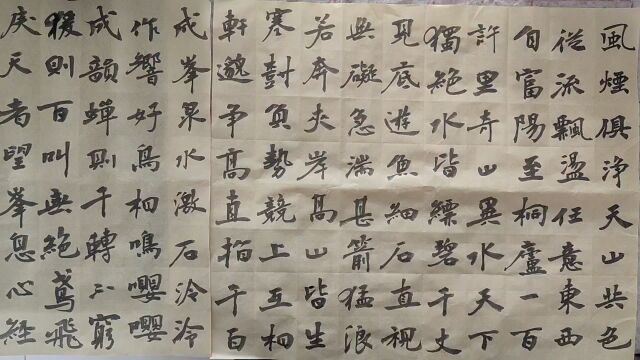 風煙俱浄天山共色
從流飄盪任意東西
自富陽至桐廬一百
許里奇山異水天下
獨絶水皆縹碧千丈
見底遊魚細石直視
無礙急湍甚箭猛浪
若奔夾岸高山皆生
寒樹負勢競上互相
軒邈争高直指千百
成峯泉水激石泠泠
作響好鳥相鳴嚶嚶
成韻蟬則千轉不窮
猨則百叫無絶鳶飛
戾天者望峯息心經